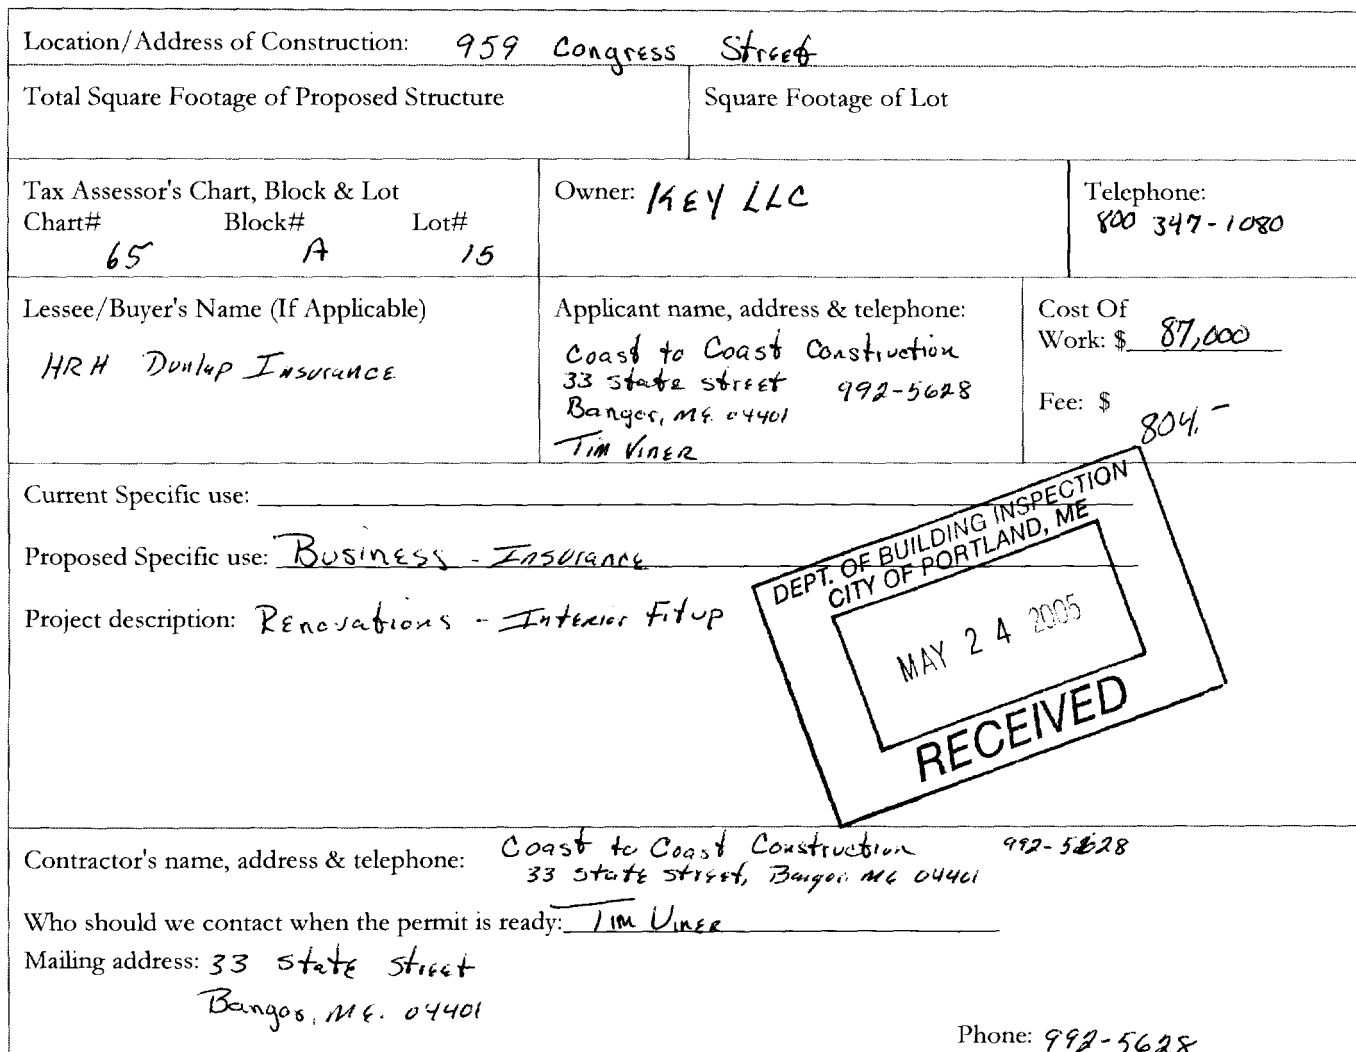 Location/Address of Construction: 959 Congress Street
Total Square Footage of Proposed Structure
Square Footage of Lot
Tax Assessor's Chart, Block & Lot
Chart# Block# Lot#
65 A 15
Owner: KEY LLC
Telephone:
800 347-1080
Lessee/Buyer's Name (If Applicable)
HRH Dunlap Insurance
Applicant name, address & telephone:
Coast to Coast Construction
33 State Street 992-5628
Bangor, ME. 04401
Tim Viner
Cost Of
Work: $ 87,000
Fee: $ 804.-
Current Specific use:
Proposed Specific use: Business - Insurance
Project description: Renovations - Interior Fitup
DEPT. OF BUILDING INSPECTION
CITY OF PORTLAND, ME
MAY 24 2005
RECEIVED
Contractor's name, address & telephone: Coast to Coast Construction 992-5628
33 State Street, Bangor ME 04401
Who should we contact when the permit is ready: Tim Viner
Mailing address: 33 State Street
Bangor, ME. 04401
Phone: 992-5628